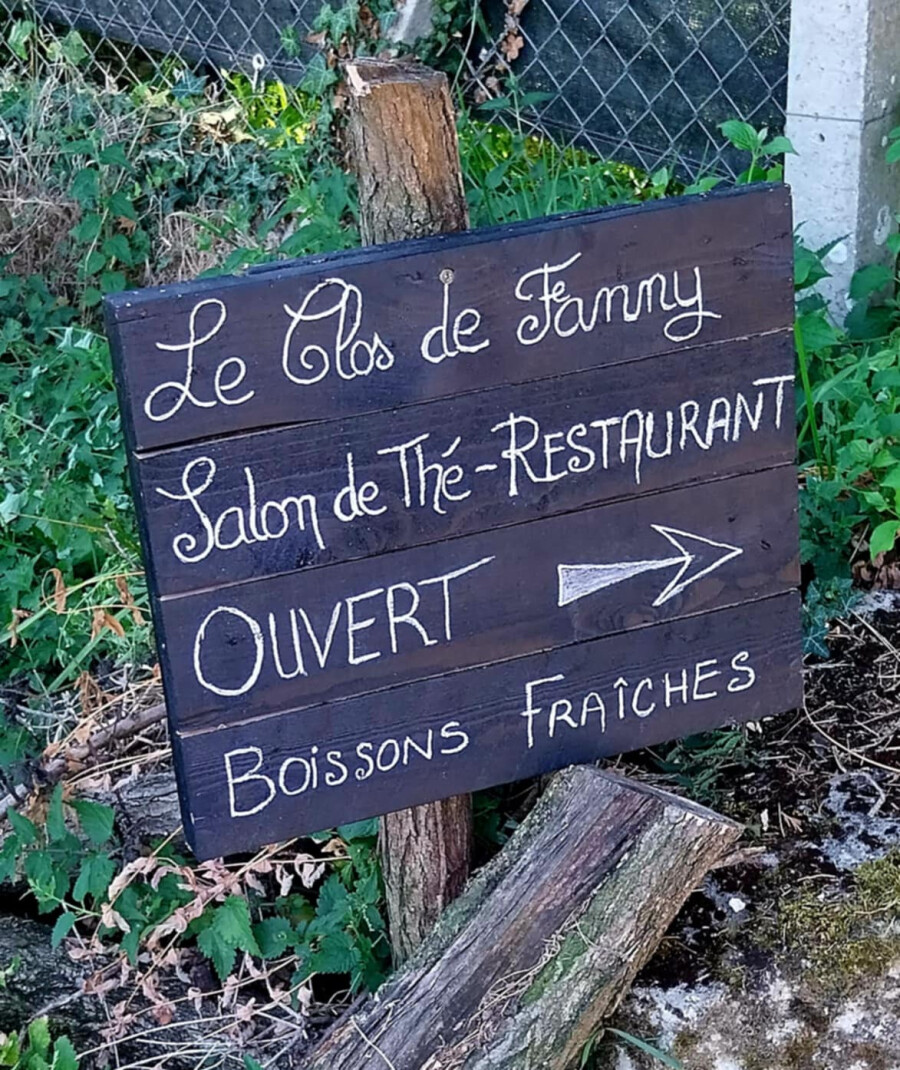 Le Clos de Fanny
Salon de Thé-RESTAURANT
OUVERT
BOiSSONS FRAÎCHES